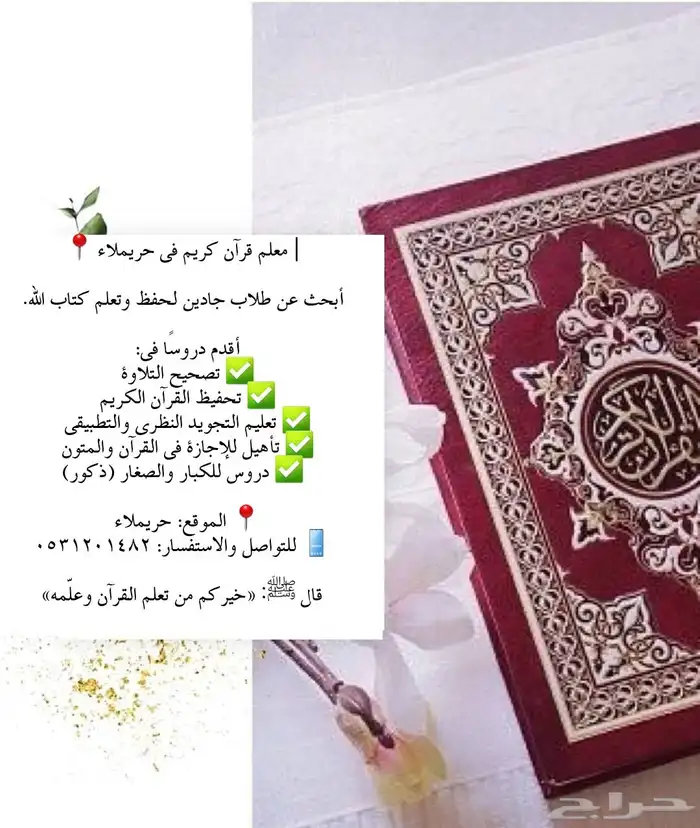 | معلم قرآن كريم فى حريملاء 📍
أبحث عن طلاب جادين لحفظ وتعلم كتاب الله.
أقدم دروسًا فى:
✅ تصحيح التلاوة
✅ تحفيظ القرآن الكريم
✅ تعليم التجويد النظرى والتطبيقى
✅ تأهيل للإجازة فى القرآن والمتون
✅ دروس للكبار والصغار (ذكور)
📍 الموقع: حريملاء
📱 للتواصل والاستفسار: ٠٥٣١٢٠١٤٨٢
قال ﷺ: «خيركم من تعلم القرآن وعلّمه»
القرآن الكريم
حراج